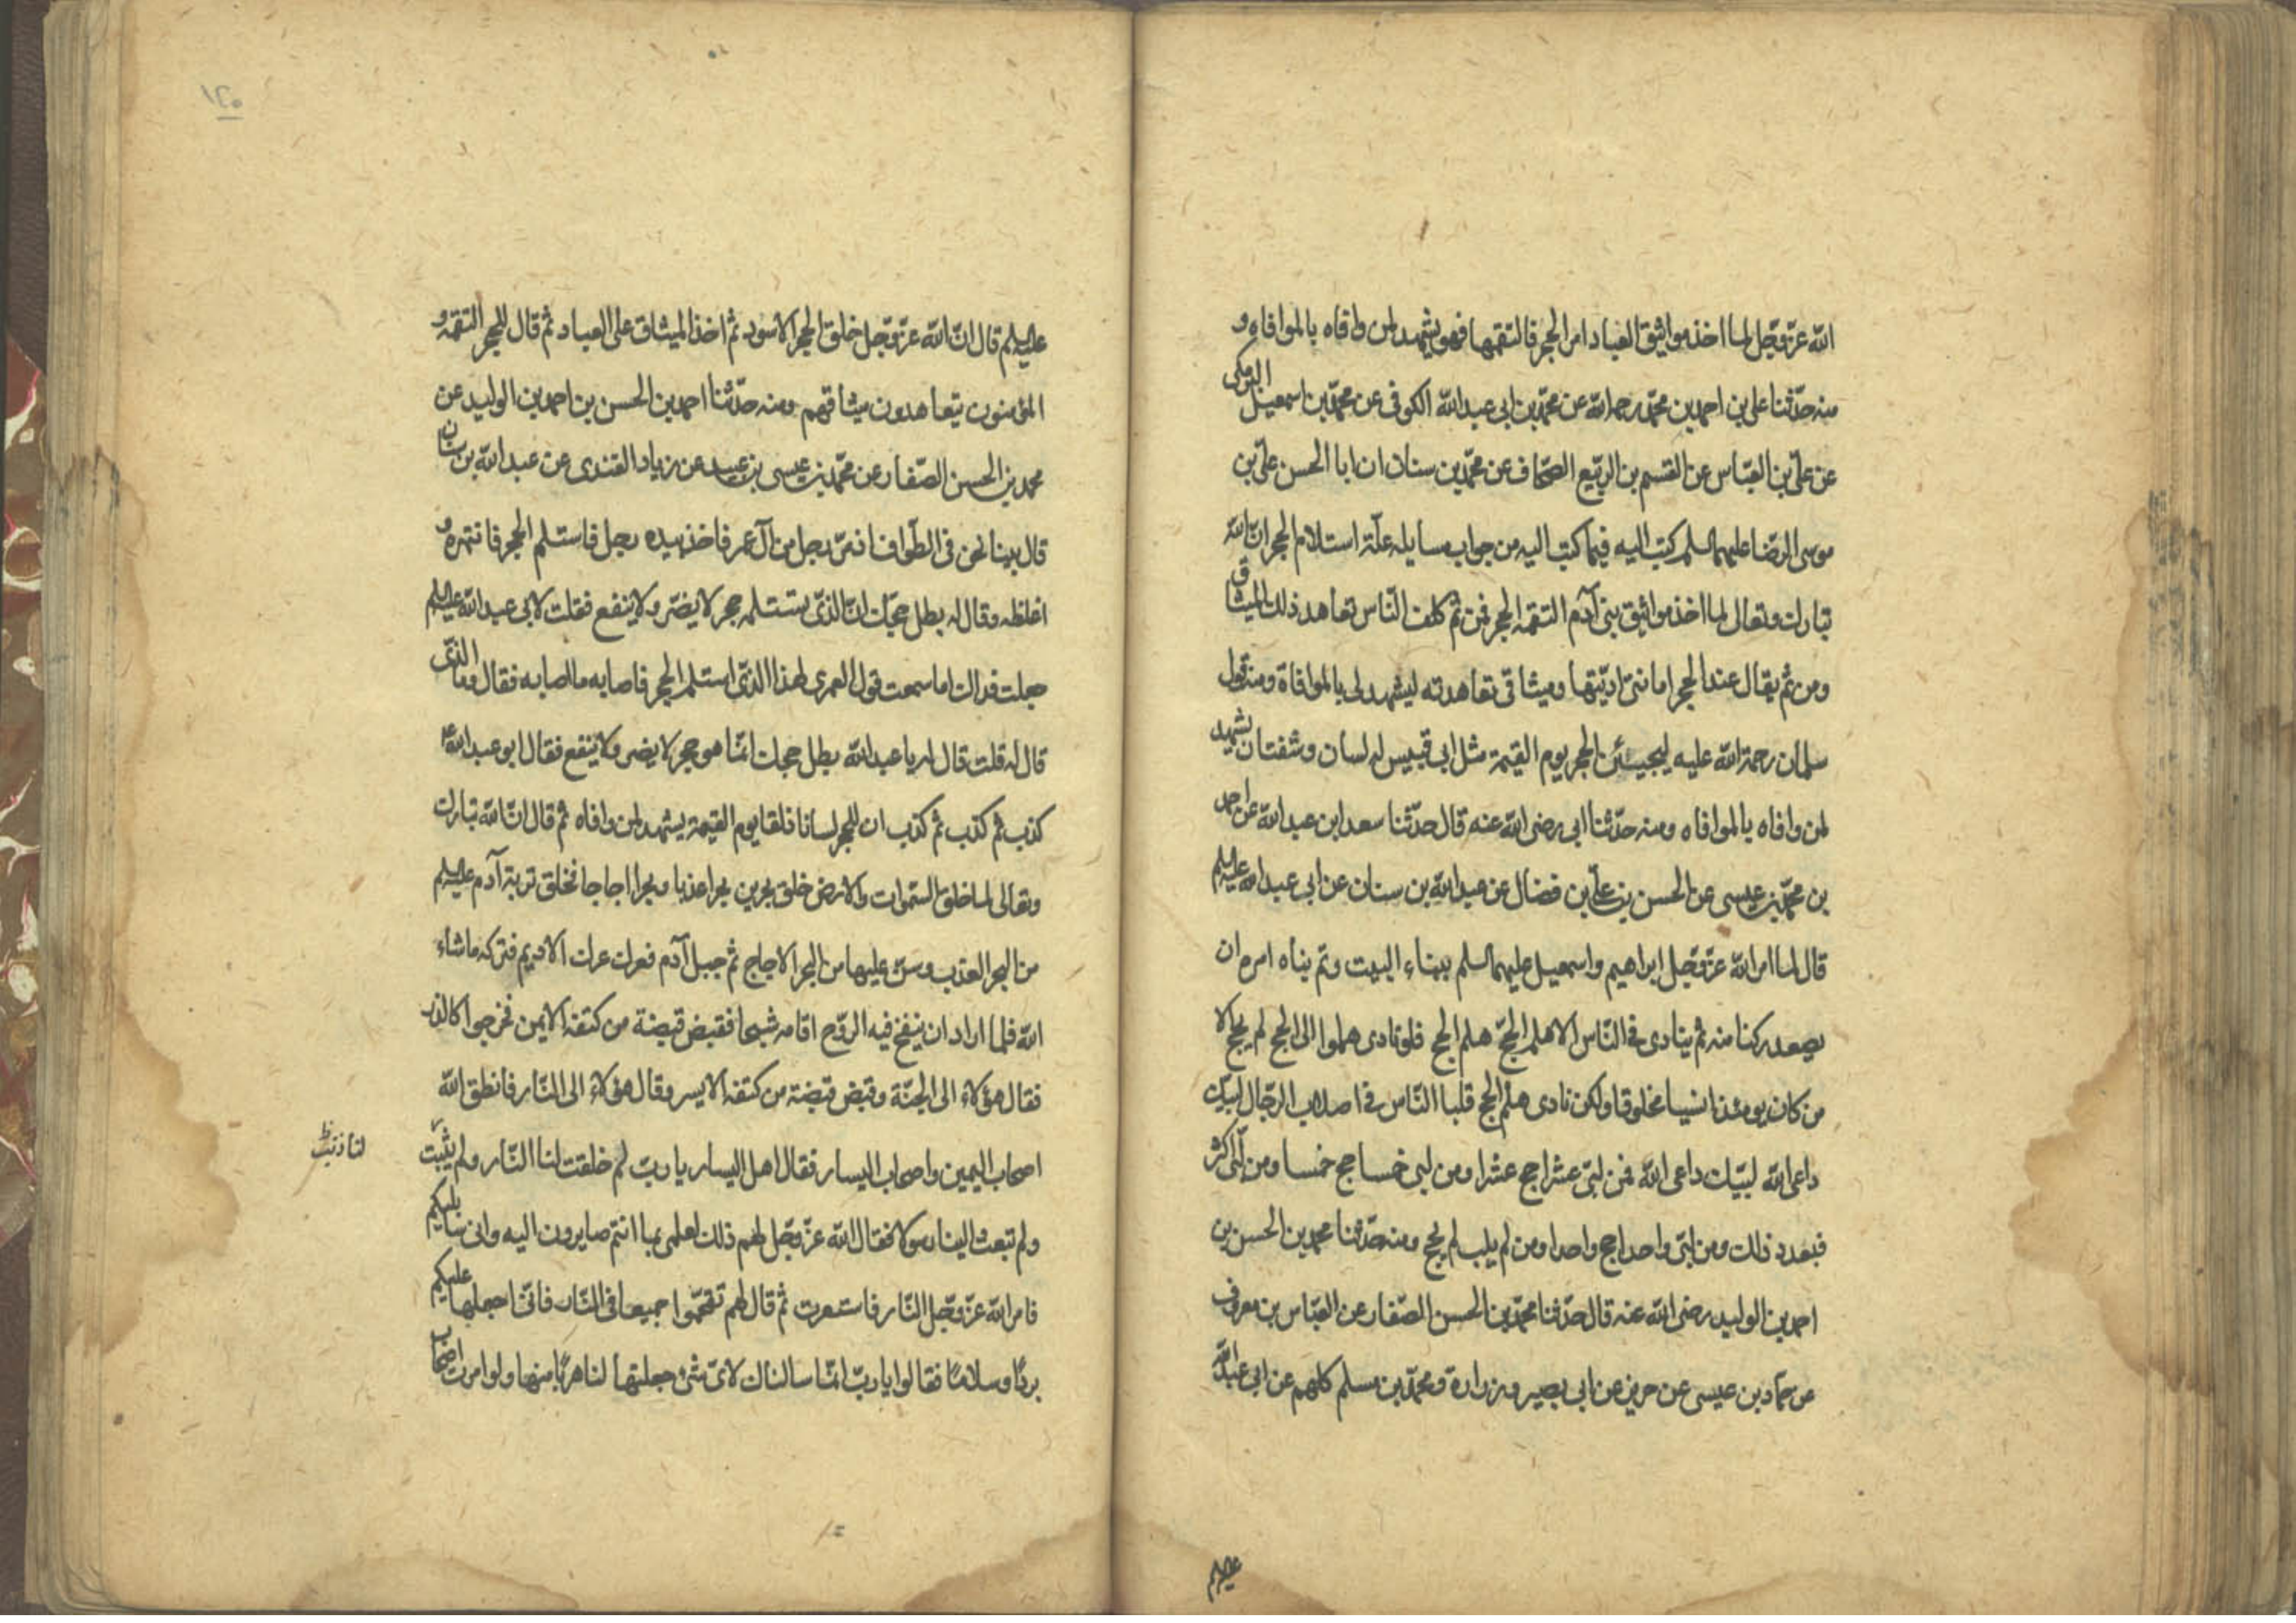 الله عزّ وجّل لما اخذ مواثيق العباد امر الحجر فالتقمها فهو يشهد لمن وافاه بالموافاه و
منه حدّثنا علي بن احمد بن محمّد رحمه الله عن محمّد بن ابى عبد الله الكوفى عن محمّد بن اسمعيل البرمكى
عن علىّ بن العبّاس عن القسم بن الربّيع الصّحاف عن محمّد بن سنان ان ابا الحسن علىّ بن
موسى الرضا عليهما السلم كتب اليه فيما كتب اليه من جواب مسايله علّة استلام الحجر انّ الله
تبارك وتعالى لما اخذ مواثيق بنى آدم التقمه الحجر فمن ثم كلف النّاس تعاهد ذلك الميثاق
ومن ثم يقال عند الحجر امانتى ادّيتها وميثاقى تعاهدته ليشهد لى بالموافاة ومنه قول
سلمان رحمة الله عليه ليجيـئن الحجر يوم القيمة مثل ابى قبيس له لسان وشفتان يشهد
لمن وافاه بالموافاه ومنه حدّثنا ابى رضى الله عنه قال حدّثنا سعد ابن عبد الله عن احمد
بن محمّد بن عيسى عن الحسن بن علىّ بن فضال عن عبد الله بن سنان عن ابى عبد الله عليه السلم
قال لما امر الله عزّ وجّل ابراهيم واسمعيل عليهما السلم ببناء البيت وتم بناه امره ان
يصعد ركنا منه ثم ينادى فى النّاس الا هلم الحجّ هلم الحج فلو نادى هلموا الى الحج لم يحج الا
من كان يومئذ انسيا مخلوقا ولكن نادى هلم الحج فلبا النّاس فى اصلاب الرجّال لبيّك
داعى الله لبيّك داعى الله فمن لبىّ عشرا حج عشرا ومن لبى خمسا حج خمسا ومن لبّى اكثر
فبعدد ذلك ومن لبىّ واحدا حج واحدا ومن لم يلب لم يحج ومنه حدّثنا محمد بن الحسن بن
احمد بن الوليد رضى الله عنه قال حدّثنا محمّد بن الحسن الصّفار عن العبّاس بن معروف
عن حمّاد بن عيسى عن حريز عن ابى بصير وزرارة ومحمّد بن مسلم كلهم عن ابى عبد الله
عليه السلم
١٢٠
عليه السلم قال انّ الله عزّ وجّل خلق الحجر الاسود ثم اخذ الميثاق على العباد ثم قال للحجر التقمه و
المؤمنون يتعاهدون ميثاقهم ومنه حدّثنا احمد بن الحسن بن احمد بن الوليد عن
محمد بن الحسن الصّفار عن محمّد بن عيسى بن عبيد عن زياد القندى عن عبد الله بن سنان
قال بينا نحن فى الطّواف اذ مرّ رجل من آل عمر فاخذ بيده رجل فاستلم الحجر فانتهره و
اغلظه وقال له بطل حجّك انّ الذىّ تستلمه حجر لا يضرّ ولا ينفع فقلت لابى عبد الله عليه السلم
جعلت فداك اما سمعت قول العمرى لهذا الذىّ استلم الحجر فاصابه ما اصابه فقال وما الذى
قال له قلت قال له يا عبد الله بطل حجك انمّا هو حجر لا يضر ولا ينفع فقال ابو عبد الله ع
كذب ثم كذب ثم كذب ان للحجر لسانا ذلقا يوم القيمة يشهد لمن وافاه ثم قال انّ الله تبارك
وتعالى لما خلق السّموات والارض خلق بحرين بحرا عذبا وبحرا اجاجا فخلق تربة آدم عليه السلم
من البحر العذب وسن عليها من البحر الاجاج ثم جبل آدم فعرك عرك الاديم فتركه ماشاء
الله فلما اراد ان ينفخ فيه الرّوح اقامه شبحا فقبض قبضة من كتفه الايمن فخرجوا كالذر
فقال هؤلاء الى الجنّة وقبض قبضة من كتفه الايسر وقال هؤلاء الى النّار فانطق الله
اصحاب اليمين واصحاب اليسار فقال اهل اليسار يا ربّ لم خلقت لنا النّار ولم يثبت
لنا ذنب ظ
ولم تبعث الينا رسولا فقال الله عزّ وجّل لهم ذلك لعلمى بما انتم صايرون اليه وانى سابليكم
فامر الله عزّ وجّل النّار فاستعرت ثم قال لهم تقحّموا جميعا فى النّار فانّى اجعلها عليكم
بردًا وسلامًا فقالوا يا ربّ انمّا سالناك لاىّ شئ جعلتها لنا هربًا منها ولو امرت اصحاب